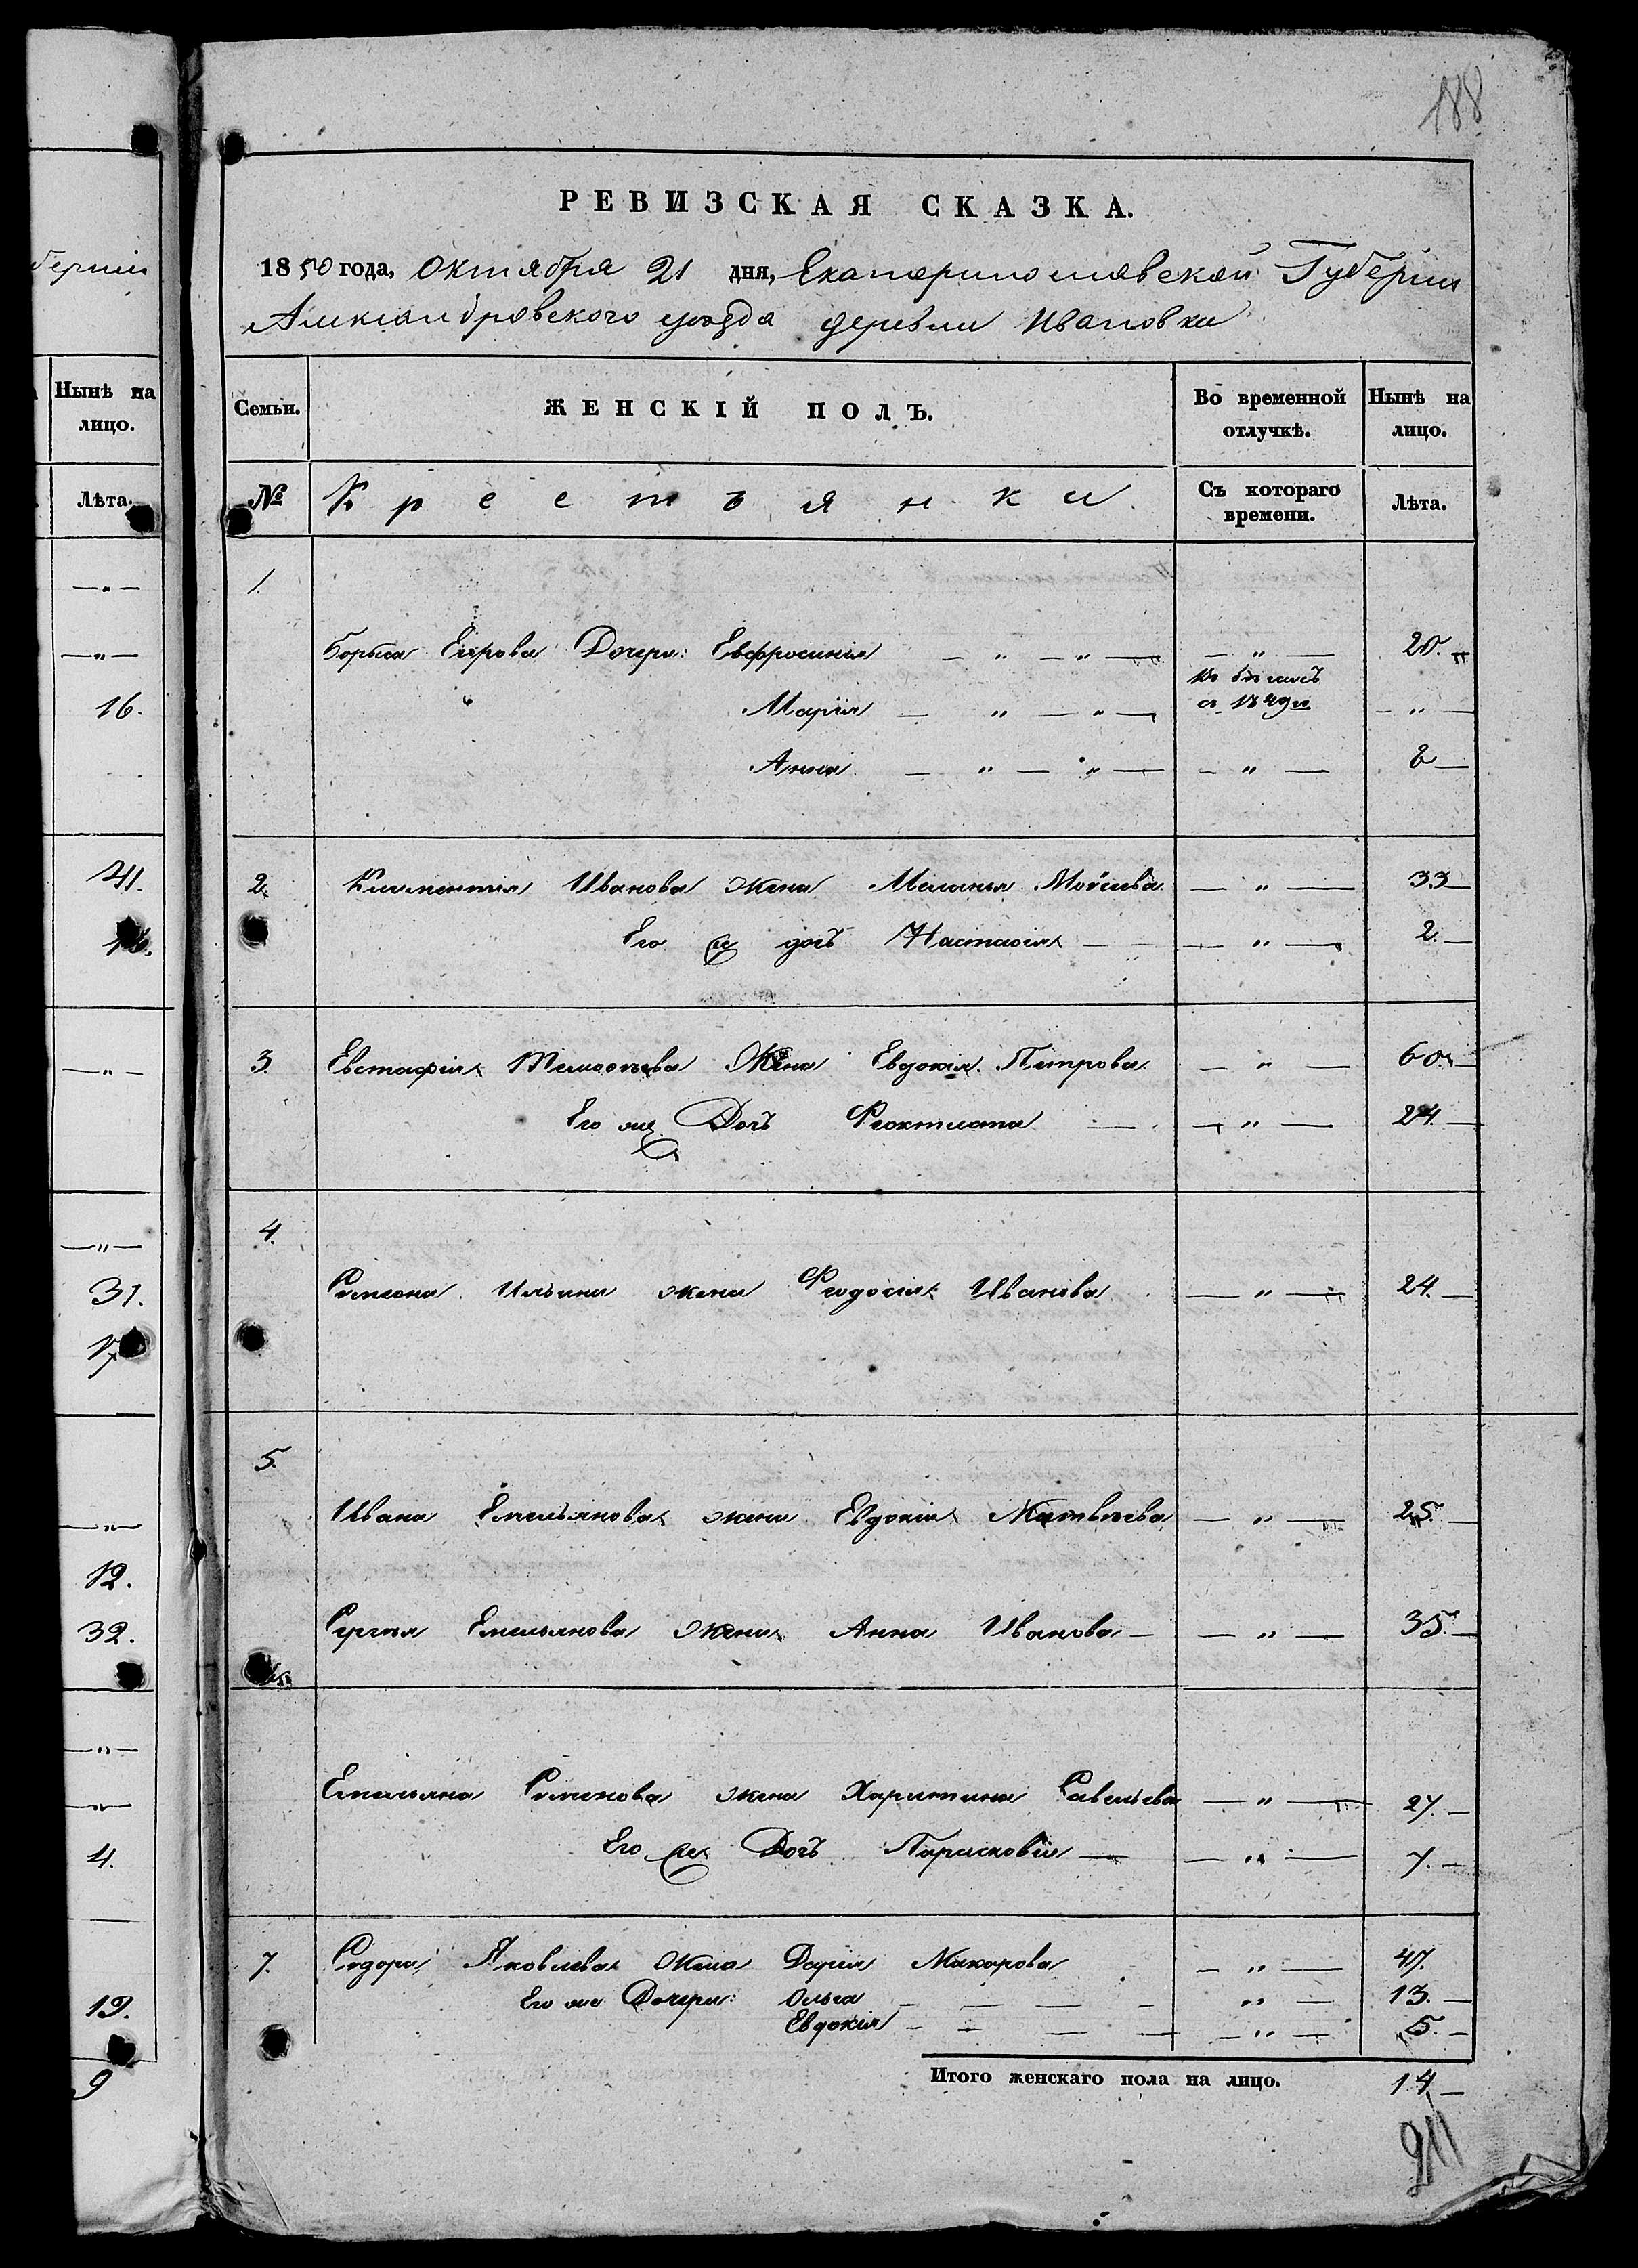 188
РЕВИЗСКАЯ СКАЗКА.
1850 года, Октября 21 дня, Екатеринославской Губернии
Александровского уѣзда деревни Ивановки
Семьи.
ЖЕНСКІЙ ПОЛЪ.
Во временной отлучкѣ.
Нынѣ на лицо.
№
Крестьянки.
Съ котораго времени.
Лѣта.
1.
Бориса Егорова Дочери: Евфросинья — " — " — — " — 20.
въ бѣгахъ
Марія — " — " — с 1849 г — " —
Анна — " — " — — " — 8 —
2. Климентія Иванова жена Меланья Мойсеева — " — 33 —
Его же дочь Настасія — — " — 2. —
3. Евстафія Тимофѣева Жена Евдокія Петрова — " — 60. —
Его же Дочь Феоктиста — — " — 24. —
4.
Симеона Ильина жена Феодосія Иванова — " — 24. —
5.
Ивана Емельянова жена Евдокія Матвѣева — " — 25. —
Сергѣя Емельянова жена Анна Иванова — — " — 35. —
Емельяна Сименова жена Харитина Савельева — " — 27. —
Его же Дочь Парасковія — — " — 7. —
7. Сидора Яковлева жена Дарія Макарова — " — 47.
Его же Дочери: Ольга — — — — " — 13. —
Евдокія — — — — — " — 5. —
Итого женскаго пола на лицо. 14 —
берніи
Нынѣ на лицо.
Лѣта.
— " —
— " —
16.
41.
— " —
— " —
31.
— " —
12.
32.
— " —
— " —
4.
19.
9